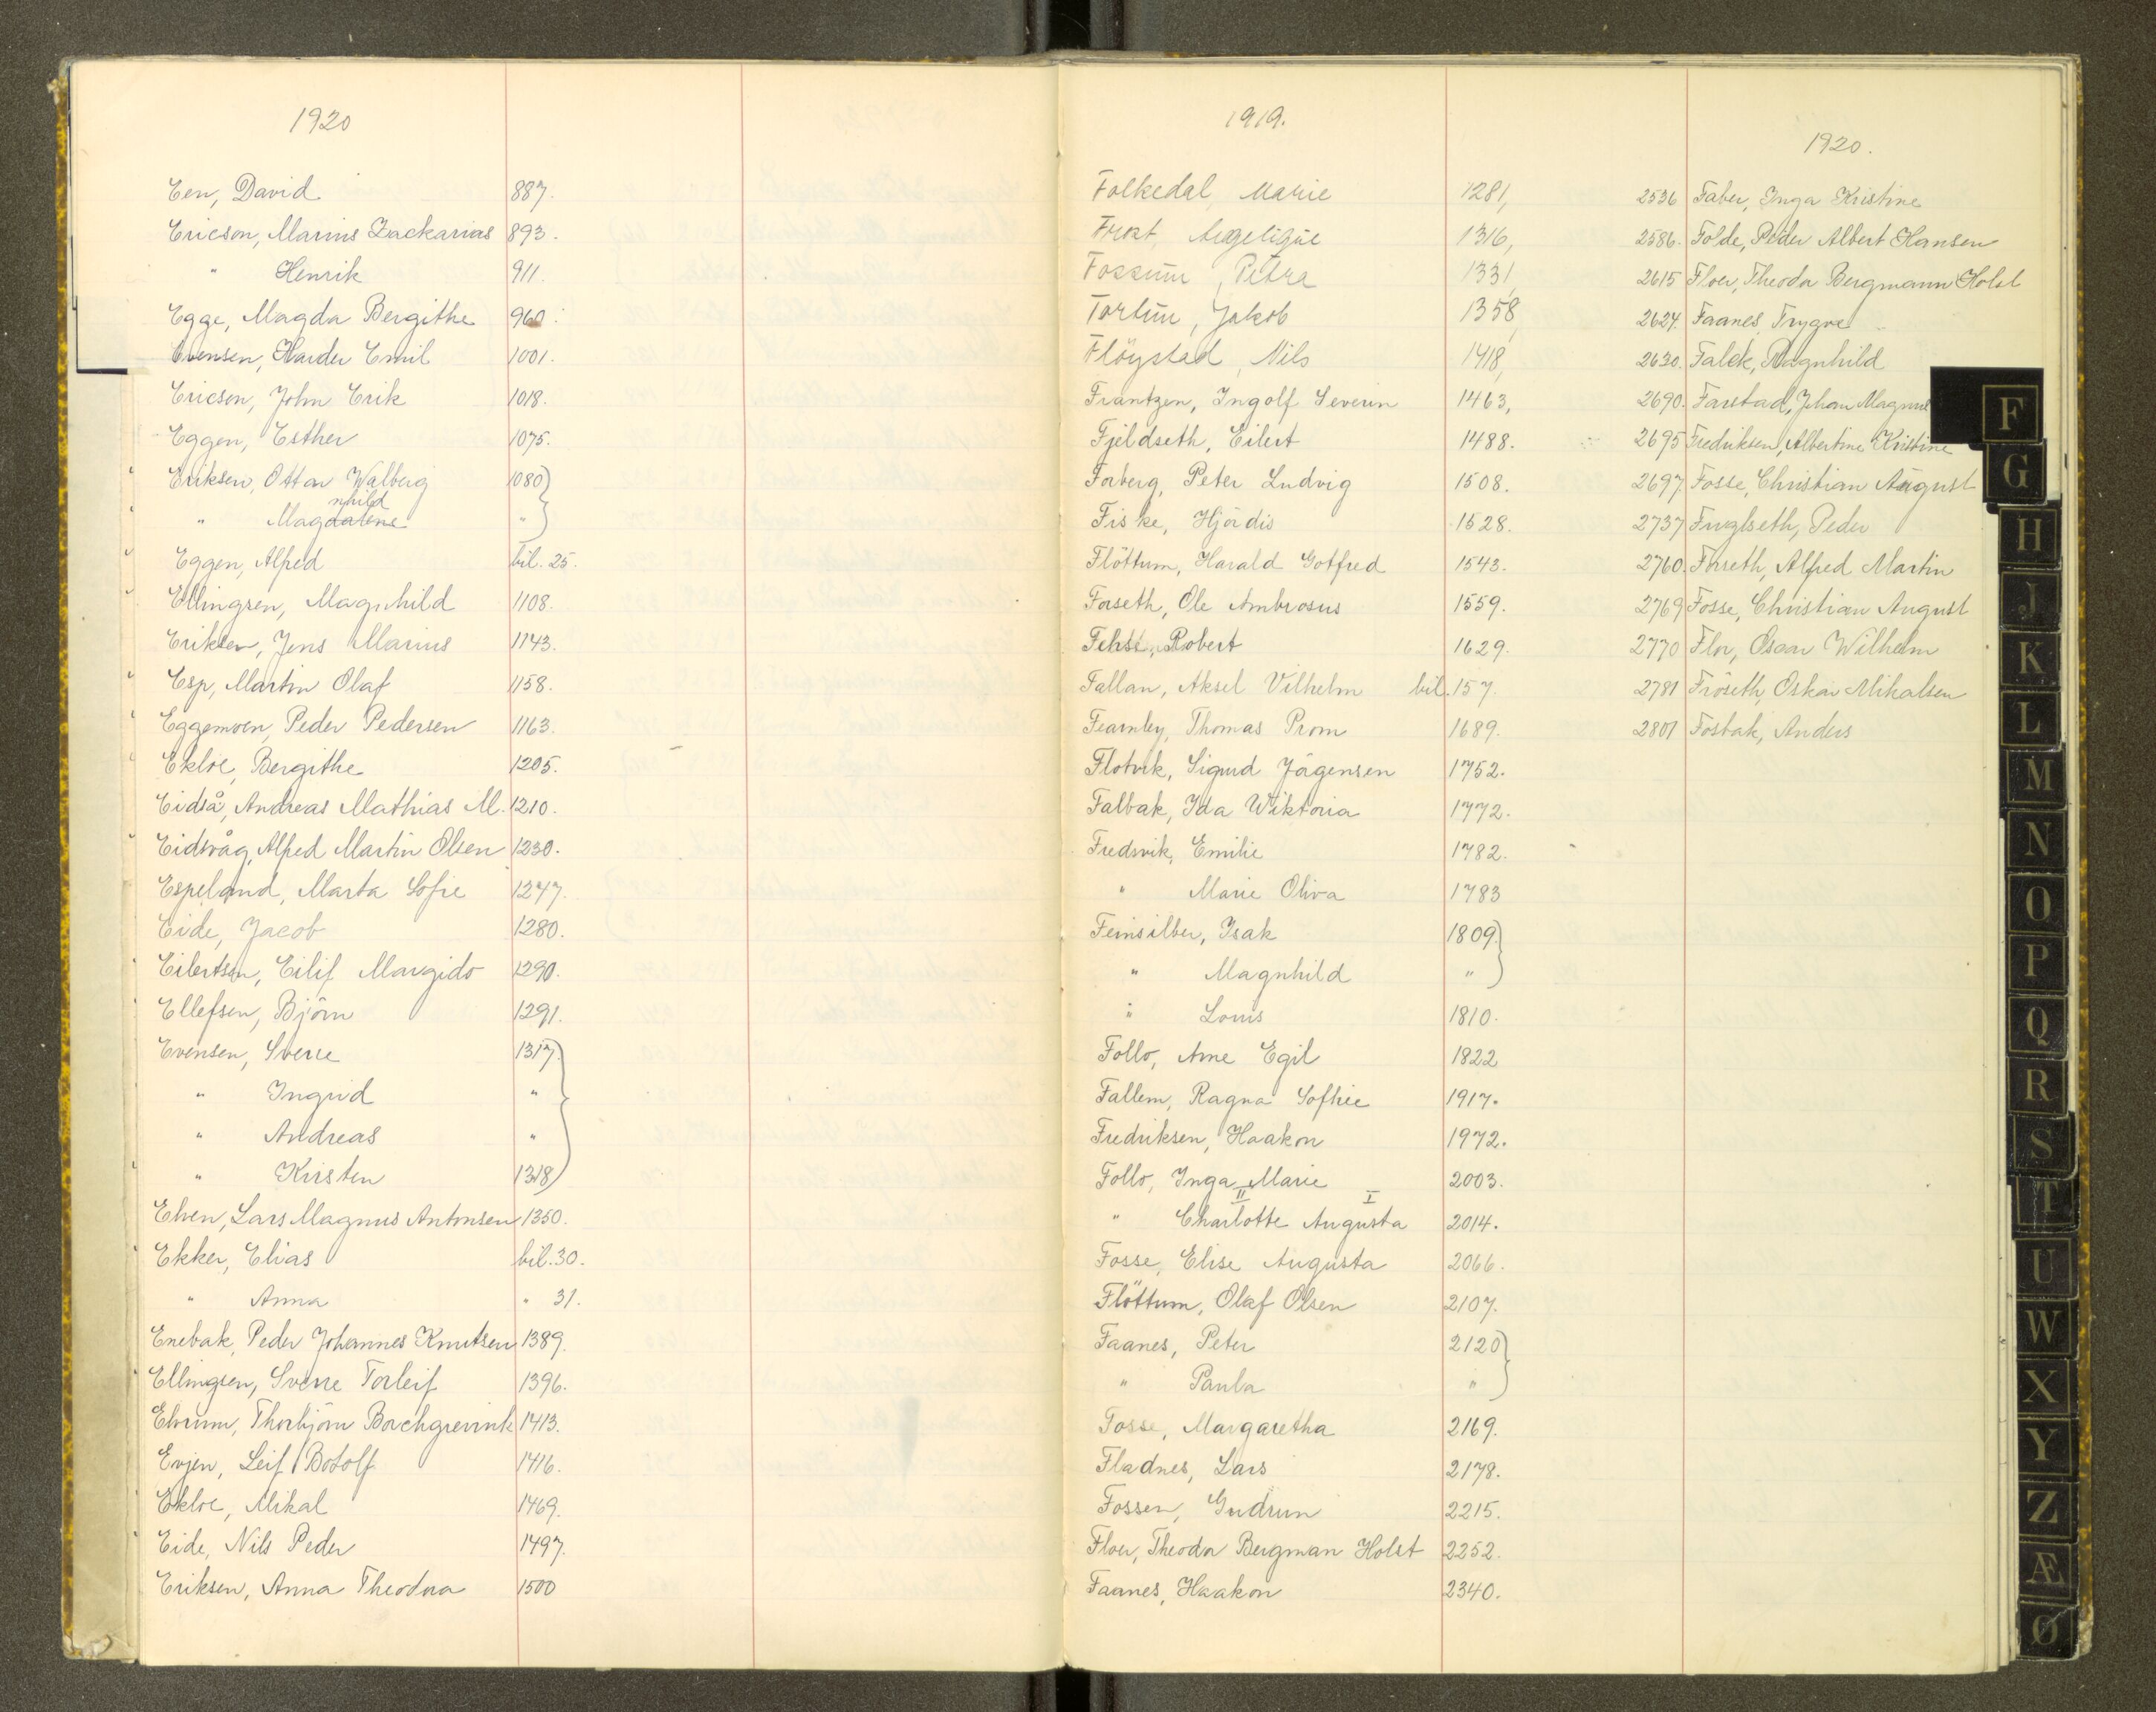 1920
Een, David 887.
Ericson, Marius Zackarias 893.
" Henrik 911.
Egge, Magda Bergithe 960.
Evensen, Harder Emil 1001.
Ericson, John Erik 1018.
Eggen, Esther 1075.
Eriksen, Ottar Walberg 1080
nhild
" Magdalene "
Eggen, Alfred bil. 25.
Ellingsen, Magnhild 1108.
Eriksen, Jens Marius 1143.
Esp, Martin Olaf 1158.
Eggemoen, Peder Pedersen 1163.
Ekloe, Bergithe 1205.
Eidså, Andreas Mathias M. 1210.
Eidsvåg, Alfred Martin Olsen 1230.
Espeland, Marta Sofie 1247.
Eide, Jacob 1280.
Eilertsen, Eilif Margido 1290.
Ellefsen, Björn 1291.
Evensen, Sverre 1317.
" Ingrid "
" Andreas "
" Kirsten 1318
Elven, Lars Magnus Antonsen 1350.
Ekker, Elias bil. 30.
" Anna " 31.
Enebak, Peder Johannes Knutsen 1389.
Ellingsen, Sverre Torleif 1396.
Elvrum, Thorbjörn Borchgrevink 1413.
Evjen, Leif Botolf 1416.
Ekloe, Mikal 1469.
Eide, Nils Peder 1497.
Eriksen, Anna Theodora 1500
1919.
Folkedal, Marie 1281,
Frost, Angelique 1316,
Fossum, Petra 1331,
Fortun, Jakob 1358,
Flöystad, Nils 1418,
Frantzen, Ingolf Severin 1463,
Fjeldseth, Eilert 1488.
Forberg, Peter Ludvig 1508.
Fiske, Hjördis 1528.
Flöttum, Harald Gotfred 1543.
Forseth, Ole Ambrosus 1559.
Fehst, Robert 1629.
Fallan, Aksel Vilhelm bil. 157.
Fearnley, Thomas Prom 1689.
Flotvik, Sigurd Jörgensen 1752.
Falbak, Ida Wiktoria 1772.
Fredsvik, Emilie 1782.
" Marie Oliva 1783
Feinsilber, Isak 1809.
" Magnhild "
" Louis 1810.
Follo, Arne Egil 1822
Fallem, Ragna Sofhie 1917.
Fredriksen, Haakon 1972.
Follo, Inga Marie 2003.
II I
" Charlotte Augusta 2014.
Fosse, Elise Augusta 2066.
Flöttum, Olaf Olsen 2107.
Faanes, Peter 2120
" Paula "
Fosse, Margaretha 2169.
Fladnes, Lars 2178.
Fossen, Gudrun 2215.
Floer, Theodor Bergman Holst 2252.
Faanes, Haakon 2340.
1920.
2536 Faber, Inga Kristine
2586. Folde, Peder Albert Hansen
2615 Floer, Theodor Bergmann Holst
2624. Faanes, Trygve
2630. Falck, Ragnhild
2690. Farstad, Johan Magnus
2695 Fredriksen, Albertine Kristine
2697. Fosse, Christian August
2737 Fuglseth, Peder
2760. Forseth, Alfred Martin
2769 Fosse, Christian August
2770 Flor, Oscar Wilhelm
2781 Fröseth, Oskar Mikalsen
2801 Fosbak, Anders
F
G
H
J
K
L
M
N
O
P
Q
R
S
T
U
W
X
Y
Z
Æ
Ø